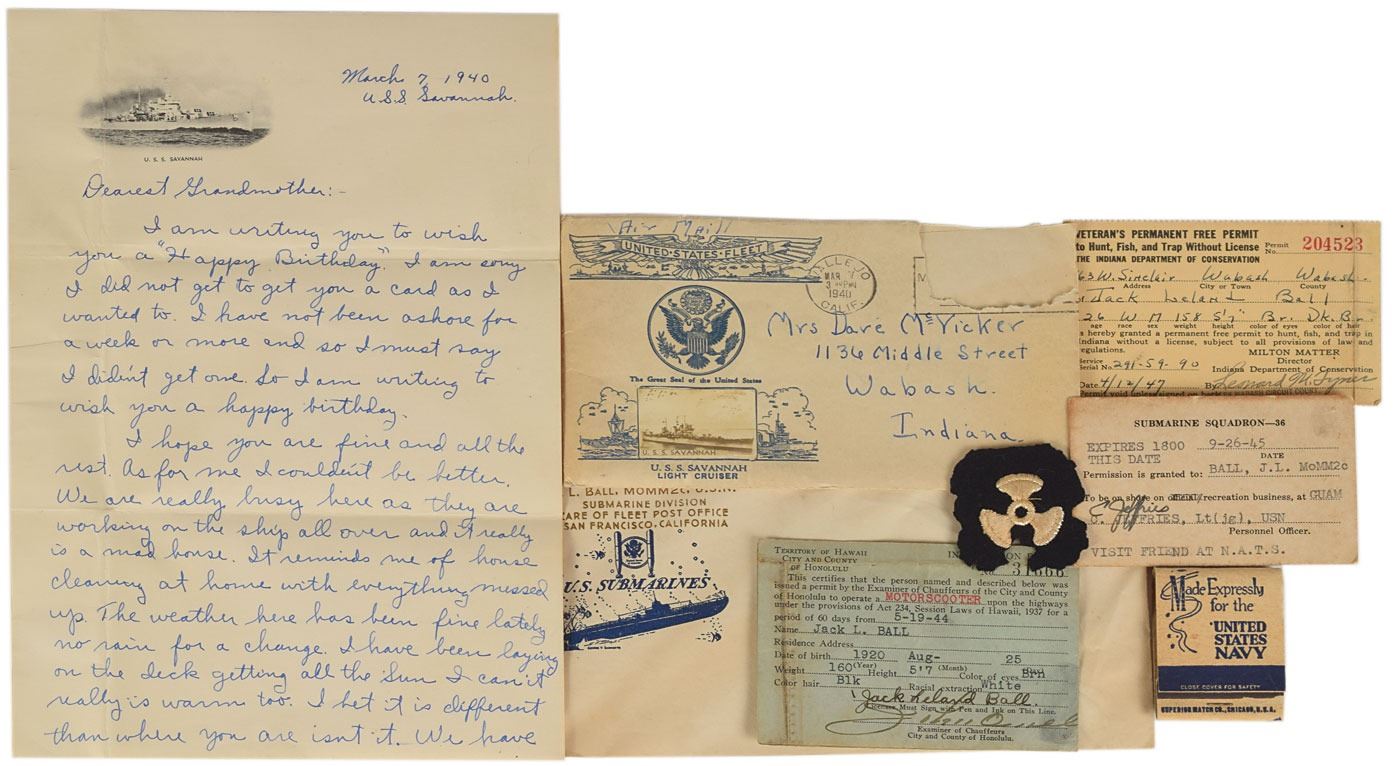 March 7, 1940
U.S.S. Savannah.
U. S. S. SAVANNAH
Dearest Grandmother:-
I am writing you to wish
you a "Happy Birthday". I am sorry
I did not get to get you a card as I
wanted to. I have not been ashore for
a week or more and so I must say
I didin't get one. So I am writing to
wish you a happy birthday.
I hope you are fine and all the
rest. As for me I couldn't be better.
We are really busy here as they are
working on the ship all over and it really
is a mad house. It reminds me of house
cleaning at home with everything messed
up. The weather here has been fine lately
no rain for a change. I have been laying
on the deck getting all the Sun I can it
really is warm too. I bet it is different
than where you are isnt it. We have
Air Mail
UNITED·STATES·FLEET
VALLEJO
MAR
3 PM
1940
CALIF.
The Great Seal of the United States
U. S. S. SAVANNAH
U. S. S. SAVANNAH
LIGHT CRUISER
Mrs Dave McVicker
1136 Middle Street
Wabash.
Indiana.
L. BALL, MOMM2c, U.S.N.
SUBMARINE DIVISION
CARE OF FLEET POST OFFICE
SAN FRANCISCO, CALIFORNIA
U.S. SUBMARINES
VETERAN'S PERMANENT FREE PERMIT
to Hunt, Fish, and Trap Without License
THE INDIANA DEPARTMENT OF CONSERVATION
Permit No. 204523
63 W. Sinclair Wabash Wabash.
Address City or Town County
Jack Leland Ball
26 W M 158 5'7" Br. Dk. Br.
age race sex weight height color of eyes color of hair
is hereby granted a permanent free permit to hunt, fish, and trap in
Indiana without a license, subject to all provisions of law and
regulations.
MILTON MATTER
Director
Indiana Department of Conservation
Service
Serial No. 291-59-90
Date 4/12/47 By
Permit void unless signed on back
SUBMARINE SQUADRON—36
EXPIRES 1800 9-26-45
THIS DATE DATE
Permission is granted to: BALL, J.L. MoMM2c
To be on shore on recreation business, at GUAM
JEFFRIES, Lt(jg), USN
Personnel Officer.
VISIT FRIEND AT N.A.T.S.
TERRITORY OF HAWAII
CITY AND COUNTY
OF HONOLULU
This certifies that the person named and described below was
issued a permit by the Examiner of Chauffeurs of the City and County
of Honolulu to operate a MOTORSCOOTER upon the highways
under the provisions of Act 234, Session Laws of Hawaii, 1937 for a
period of 60 days from 5-19-44
Name Jack L. BALL
Residence Address
Date of birth 1920 Aug- 25
(Year) (Month)
Weight 160 Height 5'7 Color of eyes Brn
Color hair Blk Racial extraction White
Jack Leland Ball.
Licensee Must Sign with Pen and Ink on This Line.
Examiner of Chauffeurs
City and County of Honolulu.
Made Expressly
for the
UNITED
STATES
NAVY
CLOSE COVER FOR SAFETY
SUPERIOR MATCH CO., CHICAGO, U.S.A.